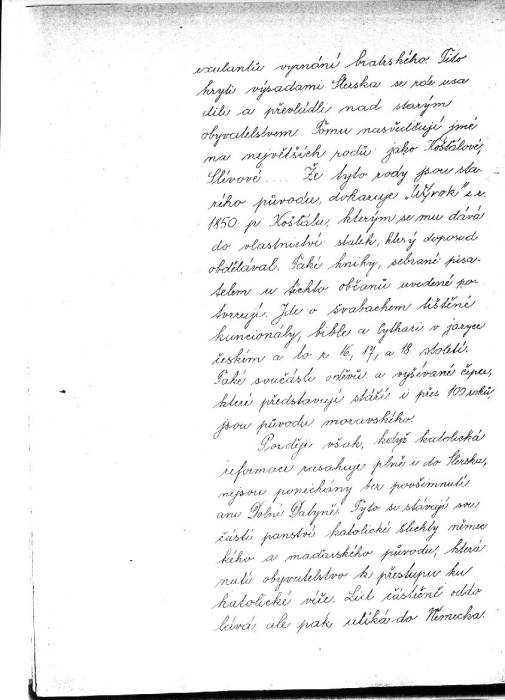 exulantů vyznání bratrského. Tito
kryti výsadami Slezska se zde usa
dili a převládli nad starým
obyvatelstvem. Tomu nasvědčují jmé
na největších rodů jako Košťálové,
Slívové.... Že tyto rody jsou sta
rého původu, dokazuje „Výrok" z r.
1850 p. Košťálu, kterým se mu dává
do vlastnictví statek, který doposud
obdělával. Také knihy, sebrané pisa-
telem u těchto občanů uvedené po-
tvrzují. Jde o švabachem tištěné
kancionály, bible a Cythari v jazyce
českém a to z 16, 17, a 18 století.
Také součásti oděvů a vyšívané čepce,
které představují stáří i přes 100 roků
jsou původu moravského.
Později však, když katolická
reformace zasahuje plně i do Slezska,
nejsou ponechány bez povšimnutí
ani Dolní Datyně. Tyto se stávají sou
částí panství katolické šlechty němec
kého a maďarského původu, která
nutí obyvatelstvo k přestupu ku
katolické víře. Lid částečně oddo
lává, ale pak utíká do Německa.